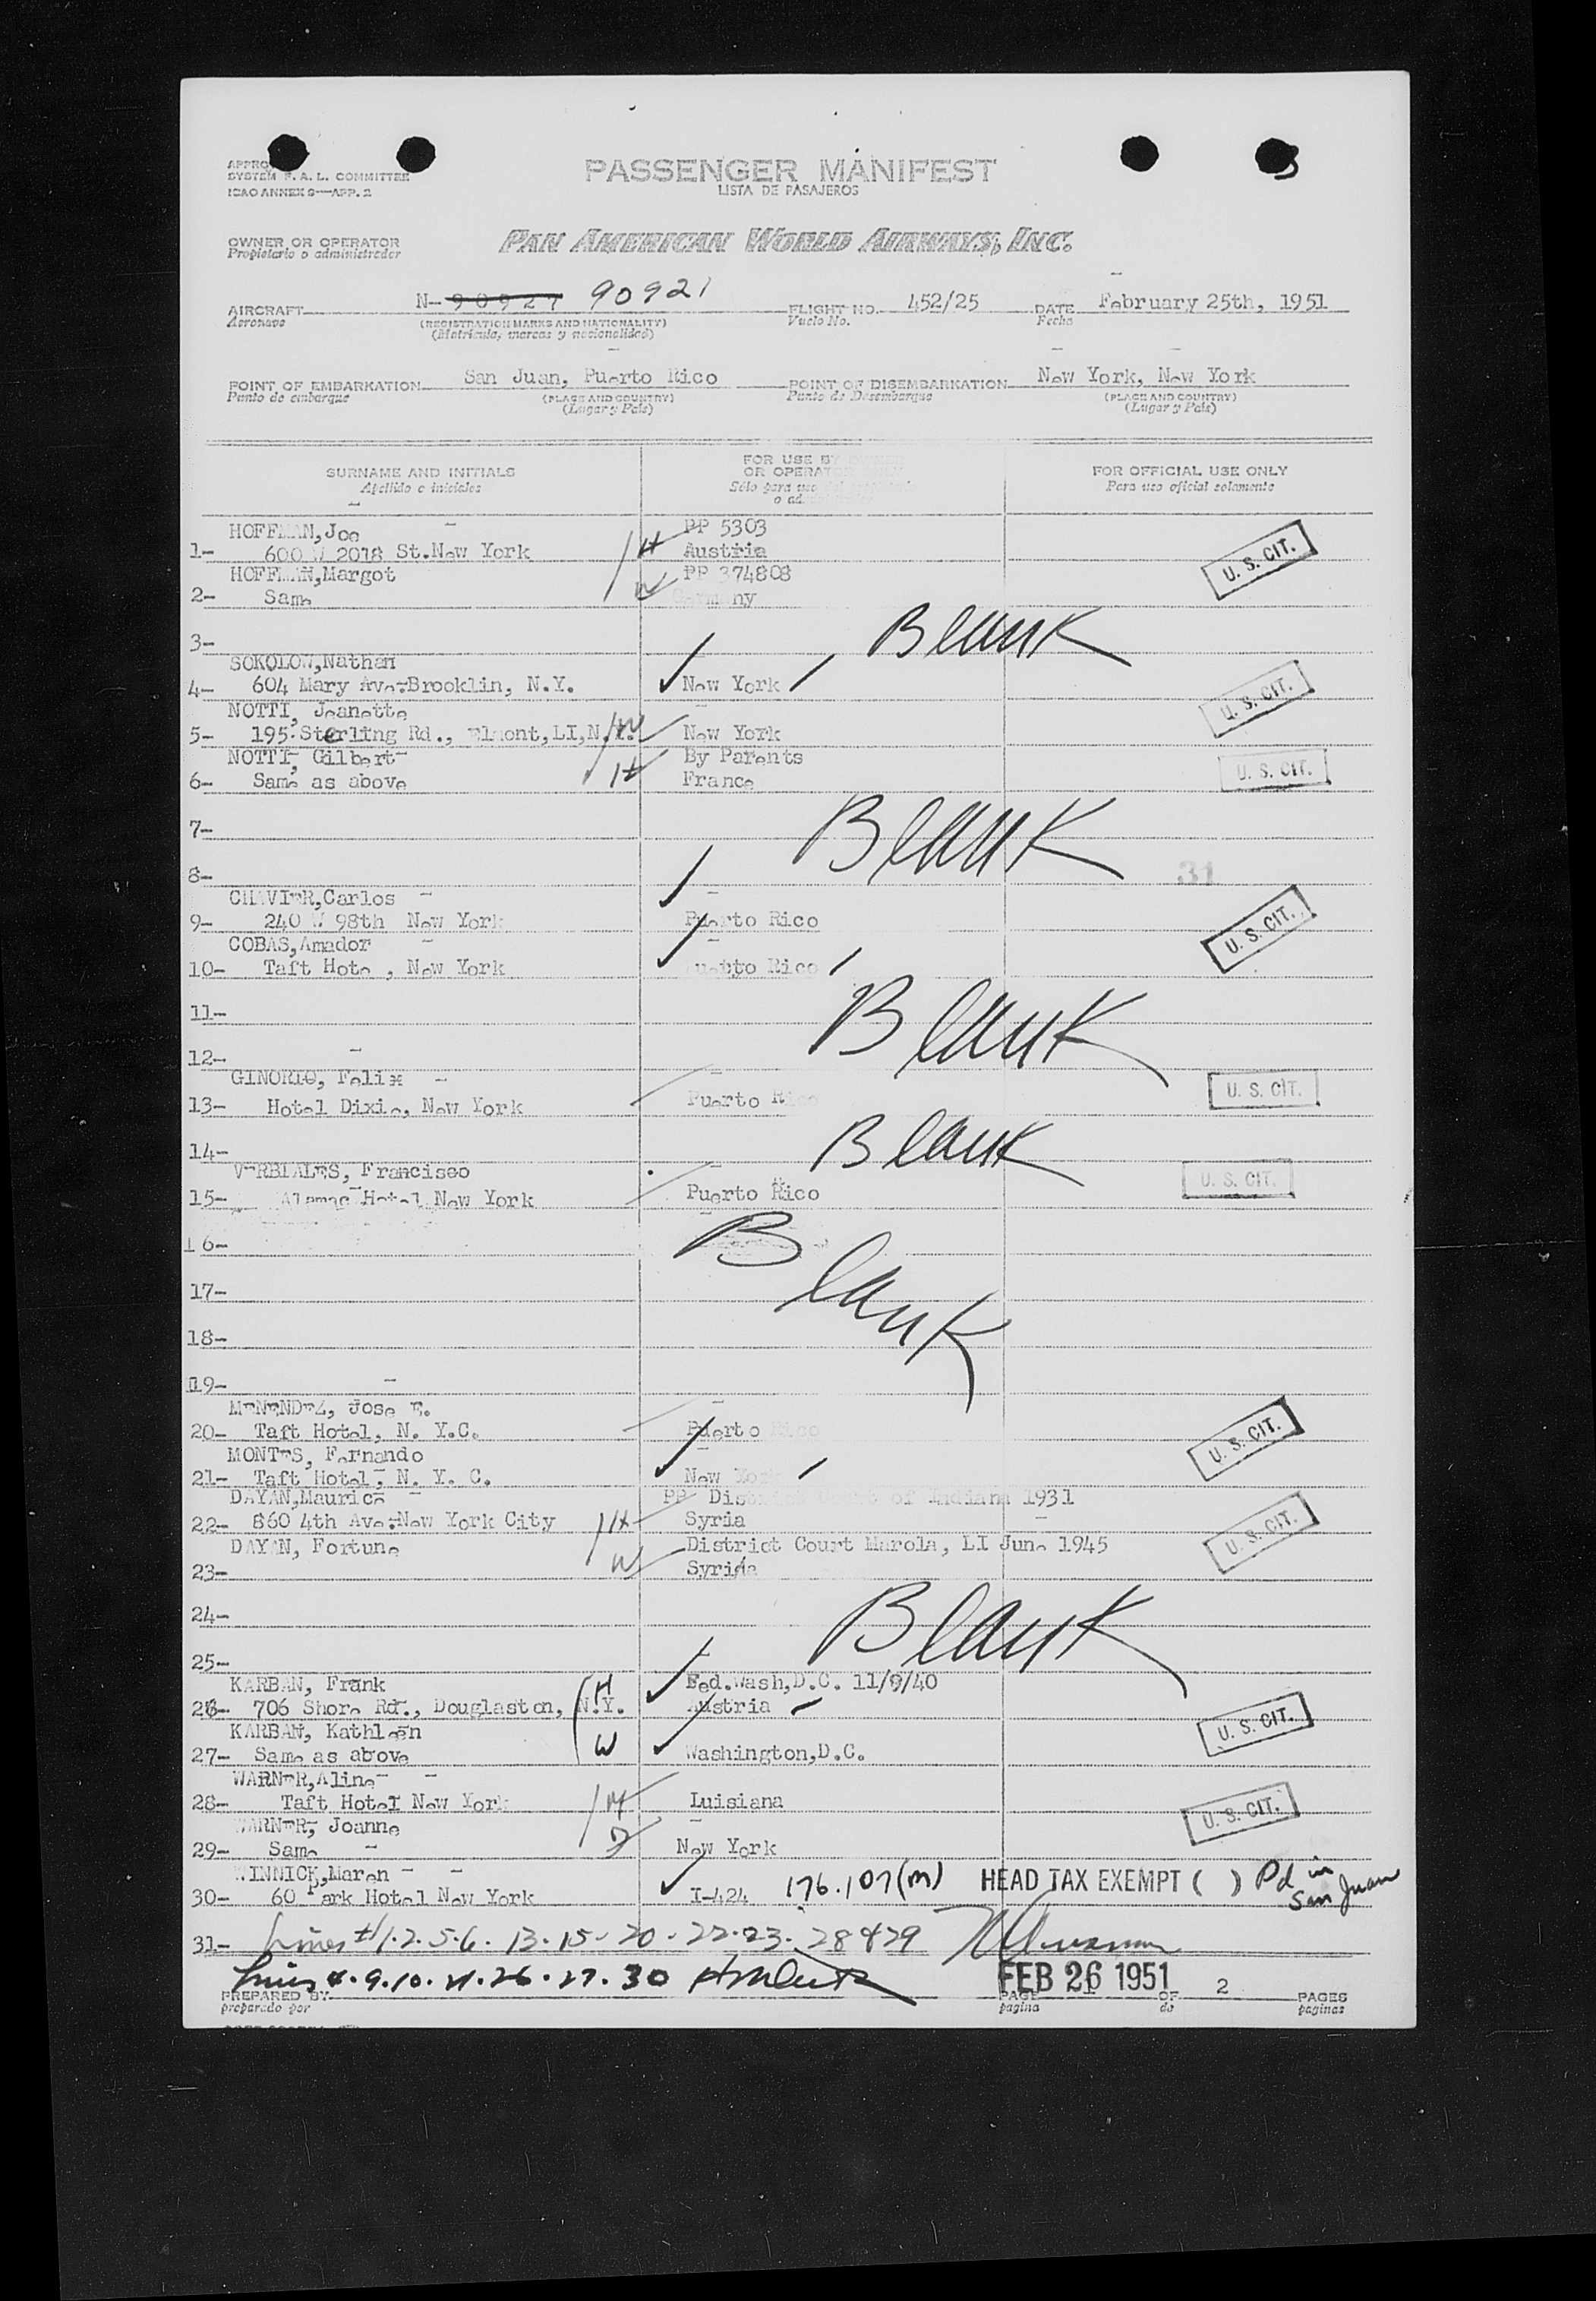 PASSENGER MANIFEST
LISTA DE PASAJEROS
SYSTEM F. A. L. COMMITTEE
ICAO ANNEX 9—APP. 2
OWNER OR OPERATOR
Propietario o administrador
PAN AMERICAN WORLD AIRWAYS, INC.
AIRCRAFT N-90927 90921 FLIGHT NO. 452/25 DATE February 25th, 1951
Aeronave (REGISTRATION MARKS AND NATIONALITY) Vuelo No. Fecha
(Matricula, marcas y nacionalidad)
POINT OF EMBARKATION San Juan, Puerto Rico POINT OF DISEMBARKATION New York, New York
Punto de embarque (PLACE AND COUNTRY) Punto de Desembarque (PLACE AND COUNTRY)
(Lugar y Pais) (Lugar y Pais)
SURNAME AND INITIALS FOR USE BY OWNER FOR OFFICIAL USE ONLY
Apellido e iniciales OR OPERATOR ONLY Para uso oficial solamente
Sólo para uso
o ad.
HOFFMAN, Joe PP 5303
1- 600 W 2018 St. New York H Austria U. S. CIT.
HOFFMAN, Margot PP 374808
2- Same W Germany
3- Blank
SOKOLOW, Nathan
4- 604 Mary Ave-Brooklin, N.Y. New York U. S. CIT.
NOTTI, Jeanette
5- 195 Sterling Rd., Elmont, LI, N.Y. W New York
NOTTI, Gilbert By Parents
6- Same as above H France U. S. CIT.
7- Blank
8- 31
CHAVIER, Carlos
9- 240 W 98th New York Puerto Rico U. S. CIT.
COBAS, Amador
10- Taft Hote , New York Puerto Rico
11- Blank
12-
GINORIO, Felix
13- Hotel Dixie, New York Puerto Rico U. S. CIT.
14- Blank
VERBIALES, Francisco
15- Alamac Hotel New York Puerto Rico U. S. CIT.
16- Blank
17-
18-
19-
MENENDEZ, Jose E.
20- Taft Hotel, N. Y.C. Puerto Rico U. S. CIT.
MONTES, Fernando
21- Taft Hotel, N. Y. C. New York
DAYAN, Maurice PP District Court of Indiana 1931
22- 860 4th Ave. New York City H Syria U. S. CIT.
DAYAN, Fortune District Court Marola, LI June 1945
23- W Syria
24- Blank
25-
KARBAN, Frank H Fed. Wash, D.C. 11/9/40
26- 706 Shore Rd., Douglaston, N.Y. Austria U. S. CIT.
KARBAN, Kathleen
27- Same as above W Washington, D.C.
WARNER, Aline
28- Taft Hotel New York M Luisiana U. S. CIT.
WARNER, Joanne
29- Same D New York
WINNICK, Maren
30- 60 Park Hotel New York I-424 176.107(m) HEAD TAX EXEMPT ( ) Pd in San Juan
31- Lines #1.2.5.6. 13.15-20.22.23.28 & 29
Lines 4.9.10.21.26.27.30
FEB 26 1951
PREPARED BY PAGE OF 2 PAGES
preparado por pagina de paginas